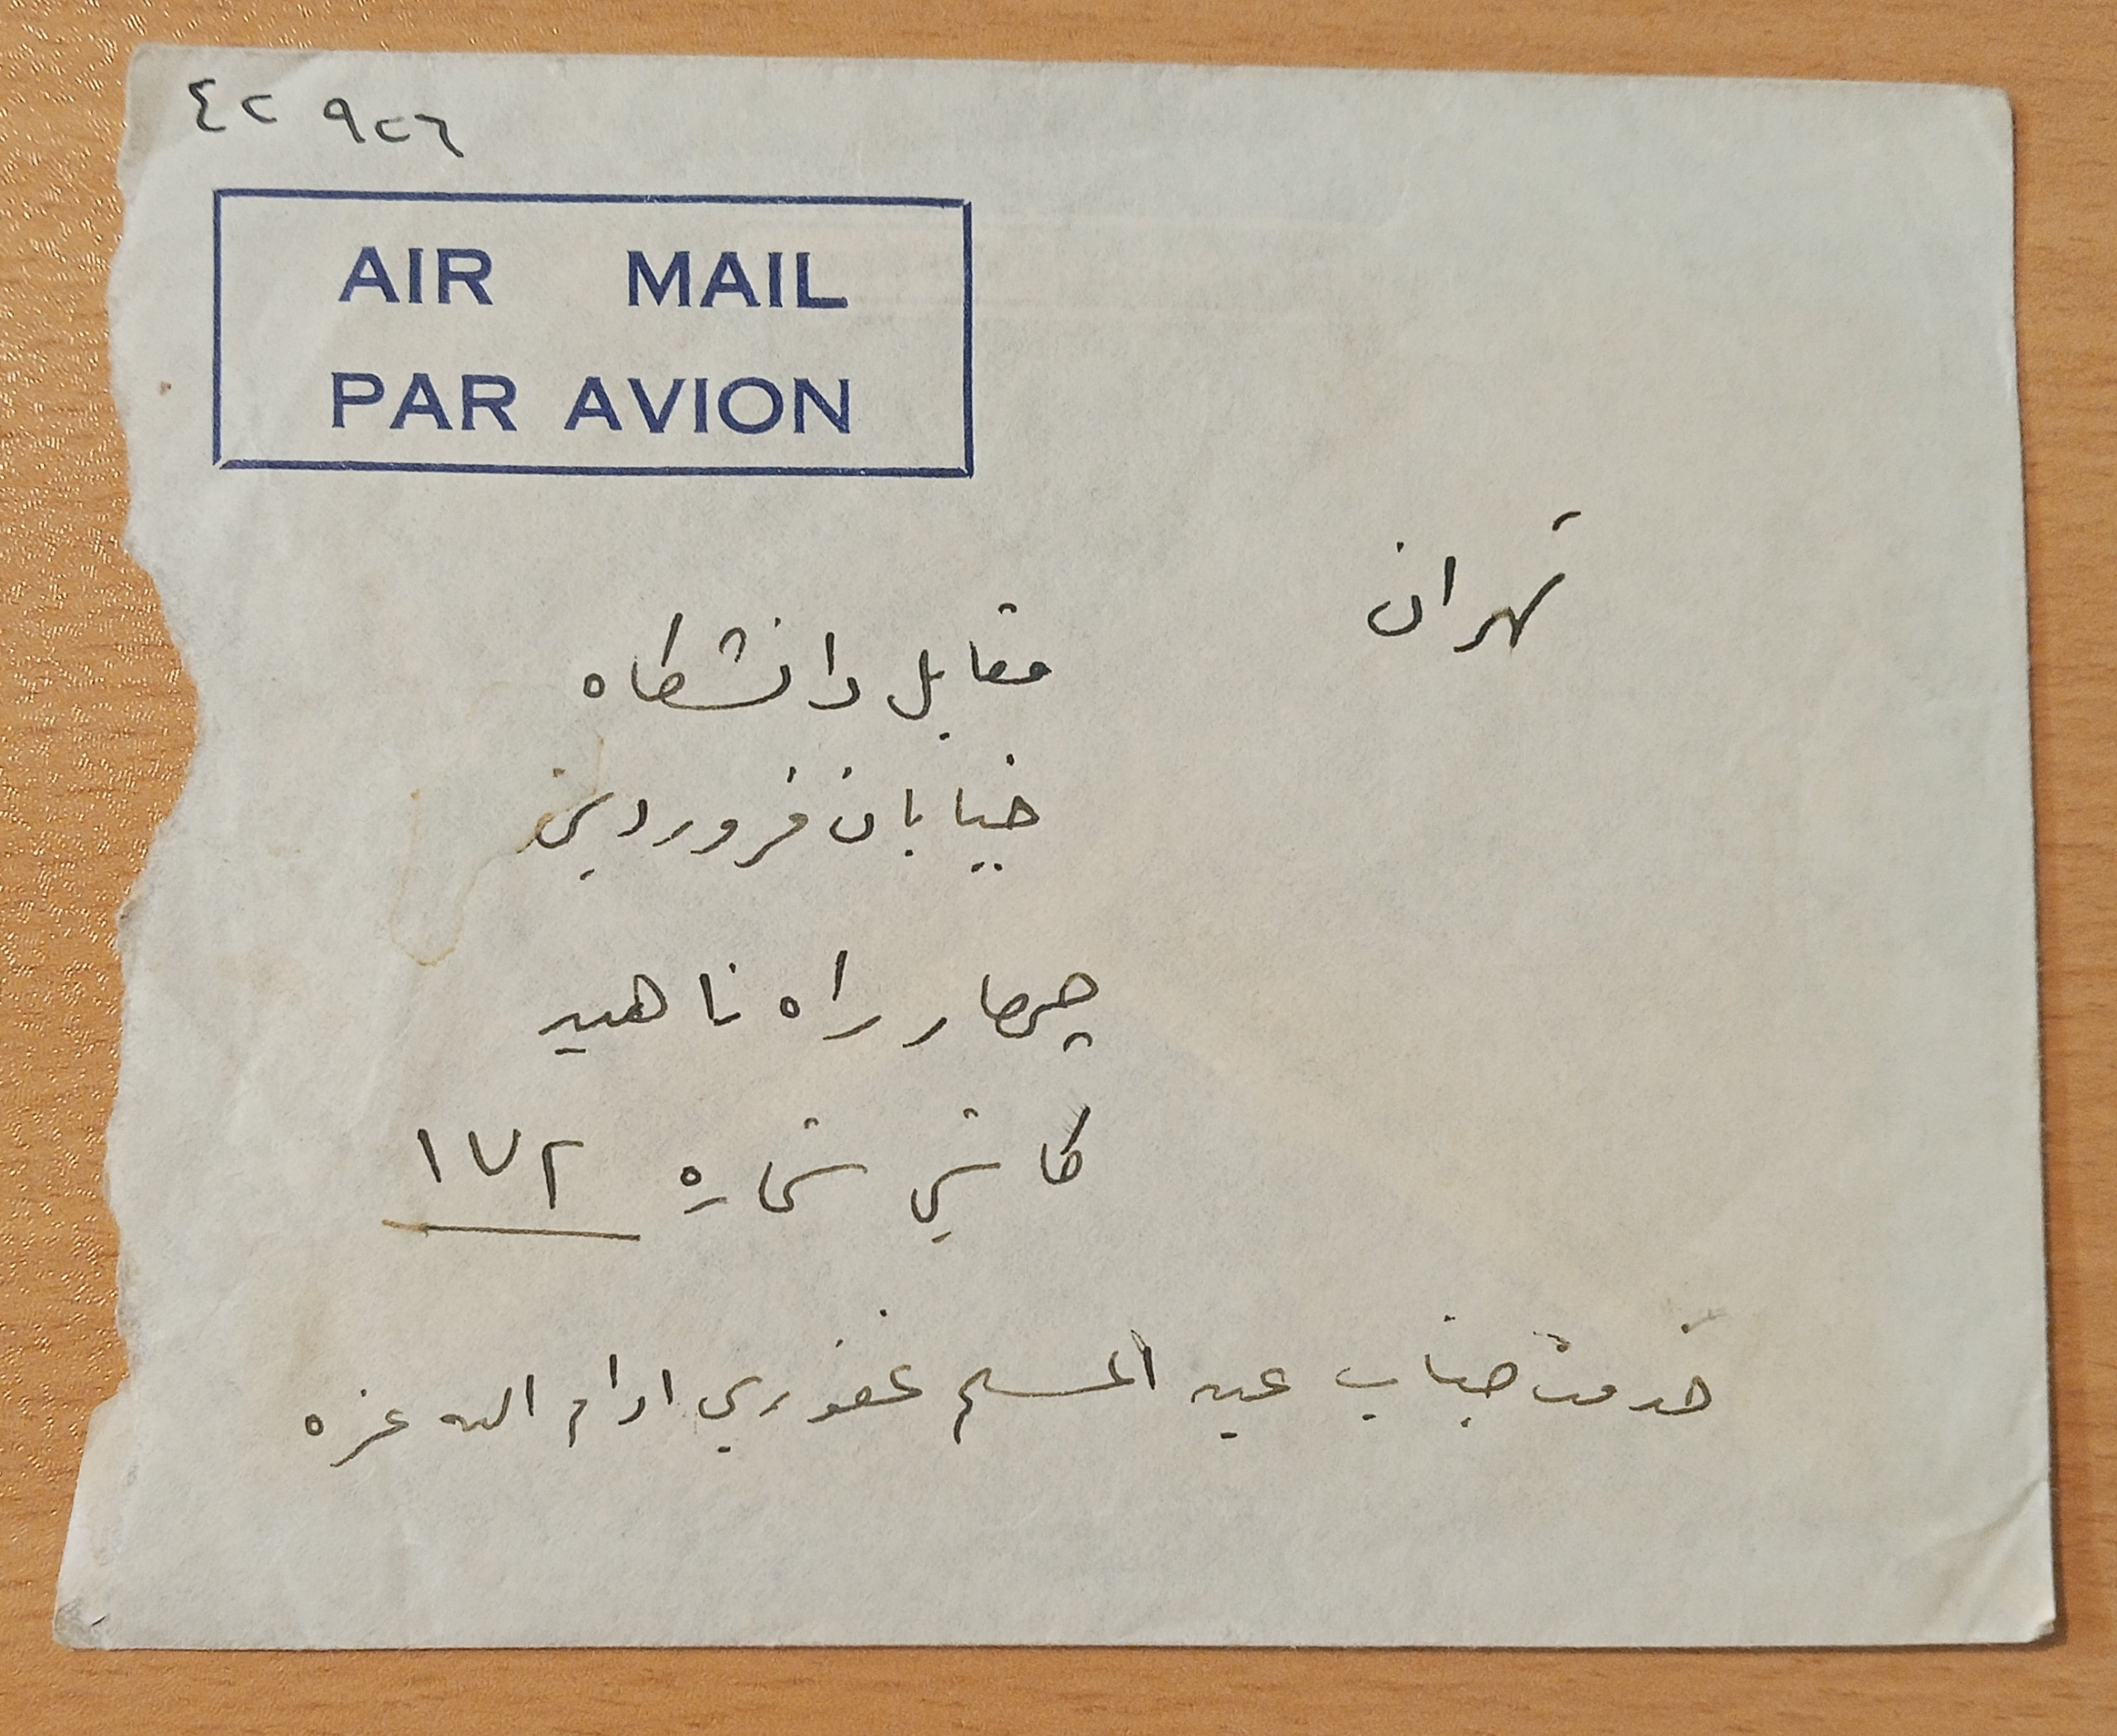 ٤٢ ٩٢٦
AIR MAIL
PAR AVION
تهران
مقابل دانشگاه
خیابان فروردین
چهار راه ناهید
کاشي شماره ١٧٢
خدمت جناب عبد المسیح غفوري ادام الله عزه